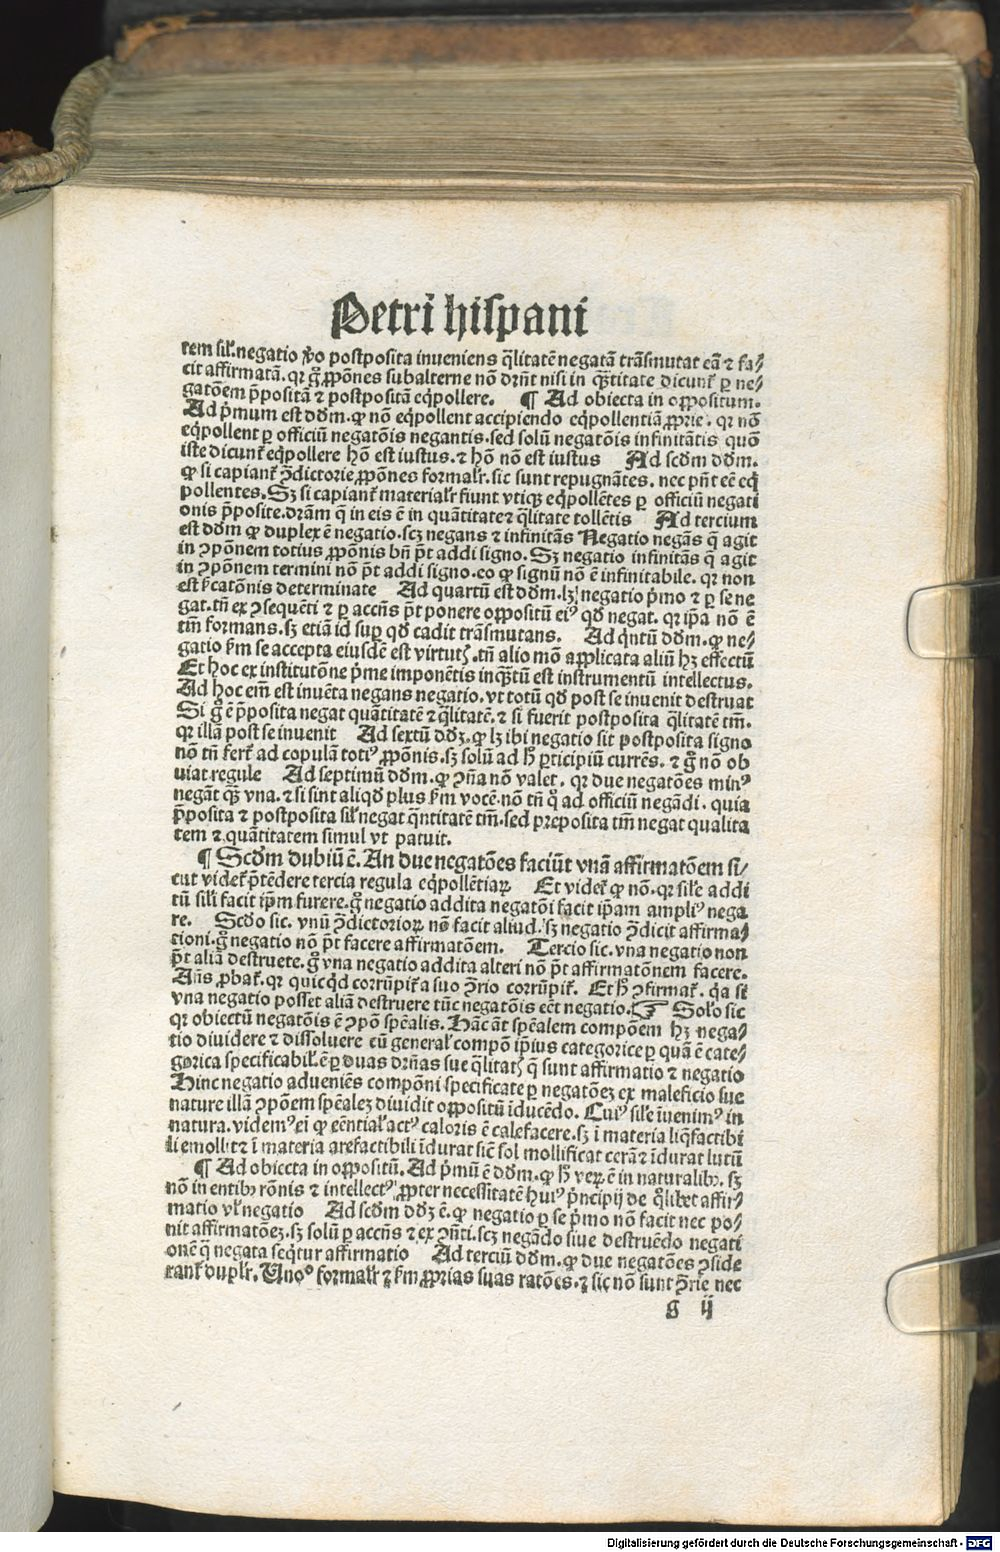 Petri hispani
tem silr̃.negatio ṽo postposita inueniens q̃litatẽ negatã trãsmutat eã ⁊ fa⸗
cit affirmatã. qr g̃ ꝓpõnes subalterne nõ dr̃nt nisi in q̃titate dicunt̃ ꝑ ne⸗
gatõem p̃positã ⁊ postpositã eq̃pollere. ¶ Ad obiecta in oppositum.
Ad p̃mum est dõm. ꝙ nõ eq̃pollent accipiendo eq̃pollentiã ꝓprie. qr nõ
eq̃pollent ꝑ officiũ negatõis negantis.sed solũ negatõis infinitãtis quõ
iste dicunt̃ eq̃pollere hõ est iustus.⁊ hõ nõ est iustus Ad scðm dõm.
ꝙ si capiant̃ ꝯ̃dictorie ꝓpõnes formalr̃. sic sunt repugnãtes. nec pñt eẽ eq̃
pollentes. Sꝫ si capiant̃ materialr̃ fiunt vtiqꝫ eq̃pollẽtes ꝑ officiũ negati
onis p̃posite.drãm q̃ in eis ẽ in quãtitate ⁊ q̃litate tollẽtis Ad tercium
est dõm ꝙ duplex ẽ negatio.scꝫ negans ⁊ infinitãs Negatio negãs q̃ agit
in ꝯpõnem totius ꝓpõnis bñ p̃t addi signo. Sꝫ negatio infinitãs q̃ agit
in ꝯpõnem termini nõ p̃t addi signo.eo ꝙ signũ nõ ẽ infinitabile. qr non
est s̃catõnis determinate Ad quartũ est dõm.lꝫ negatio p̃mo ⁊ ꝑ se ne
gat.tñ ex ꝯsequẽti ⁊ ꝑ accñs p̃t ponere oppositũ eiꝰ qð negat. qr ip̃a nõ ẽ
tm̃ formans.sꝫ etiã id suꝑ qð cadit trãsmutans. Ad q̃ntũ dõm.ꝙ ne⸗
gatio s̃m se accepta eiusdẽ est virtutꝭ.tñ alio mõ applicata aliũ hꝫ effectũ
Et hoc ex institutõne p̃me imponẽtis inq̃tũ est instrumentũ intellectus.
Ad hoc em̃ est inuẽta negans negatio.vt totũ qð post se inuenit destruat
Si g̃ ẽ p̃posita negat quãtitatẽ ⁊ q̃litatẽ. ⁊ si fuerit postposita q̃litatẽ tm̃.
qr illã post se inuenit Ad sextũ dõꝫ.ꝙ lꝫ ibi negatio sit postposita signo
nõ tñ fert̃ ad copulã totiꝰ ꝓpõnis.sꝫ solũ ad h̃ ꝑticipiũ currẽs. ⁊ g̃ nõ ob
uiat regule Ad septimũ dõm.ꝙ ꝯña nõ valet. qr due negatões minꝰ
negãt qꝫ vna. ⁊ si sint aliqð plus s̃m vocẽ.nõ tñ q̃ ad officiũ negãdi. quia
p̃posita ⁊ postposita silr̃ negat q̃ntitatẽ tm̃.sed preposita tm̃ negat qualita
tem ⁊ quãtitatem simul vt patuit.
¶ Scðm dubiũ ẽ. An due negatões faciũt vnã affirmatõem si⸗
cut videt̃ p̃tẽdere tercia regula eq̃pollẽtiaꝝ Et videt̃ ꝙ nõ.qr sil̃e addi
tũ sili facit ip̃m furere.g̃ negatio addita negatõi facit ip̃am ampliꝰ nega
re. Scðo sic. vnũ ꝯ̃dictorioꝝ nõ facit aliud.sꝫ negatio ꝯ̃dicit affirma⸗
tioni.g̃ negatio nõ p̃t facere affirmatõem. Tercio sic. vna negatio non
p̃t aliã destruete.g̃ vna negatio addita alteri nõ p̃t affirmatõnem facere.
Añs ꝓbat̃. qr quicq̃d corrũpit̃ a suo ꝯ̃rio corrũpit̃. Et h̃ ꝯfirmat̃. q̃a si
vna negatio posset aliã destruere tũc negatõis eẽt negatio. ☞ Solo sic
qr obiectũ negatõis ẽ ꝯpõ sp̃ealis. Hãc ãt sp̃ealem compõem hꝫ nega⸗
tio diuidere ⁊ dissoluere cũ general̃ compõ ip̃ius categorice ꝑ quã ẽ cate⸗
gorica specificabil̃.ẽ ꝑ duas drñas sue q̃litatꝭ q̃ sunt affirmatio ⁊ negatio
Hinc negatio adueniẽs compõni specificate ꝑ negatõeꝫ ex maleficio sue
nature illã ꝯpõem sp̃ealeꝫ diuidit oppositũ ĩducẽdo. Cuiꝰ sil̃e ĩuenimꝰ in
natura.videmꝰ ei ꝙ eẽntial̃ actꝰ caloris ẽ calefacere.sꝫ ĩ materia liq̃factibi
li emollit ⁊ ĩ materia arefactibili ĩdurat sicẽ sol mollificat cerã ⁊ ĩdurat lutũ
¶ Ad obiecta in oppositũ. Ad p̃mũ ẽ dõm.ꝙ h̃ veꝝ ẽ in naturalibꝫ. sꝫ
nõ in entibꝫ rõnis ⁊ intellectꝰ ꝓpter necessitatẽ huiꝰ p̃ncipij de q̃libet affir⸗
matio vl̃ negatio Ad scðm dõꝫ ẽ.ꝙ negatio ꝑ se p̃mo nõ facit nec po⸗
nit affirmatõeꝫ.sꝫ solũ ꝑ accñs ⁊ ex ꝯñti.scꝫ negãdo siue destruẽdo negati
onẽ q̃ negata seq̃tur affirmatio Ad terciũ dõm.ꝙ due negatões ꝯside
rant̃ duplr̃. Vnoº formalr̃ ⁊ s̃m ꝓprias suas ratões.⁊ sic nõ sunt ꝯ̃rie nec
g ij
Digitalisierung gefördert durch die Deutsche Forschungsgemeinschaft - DFG